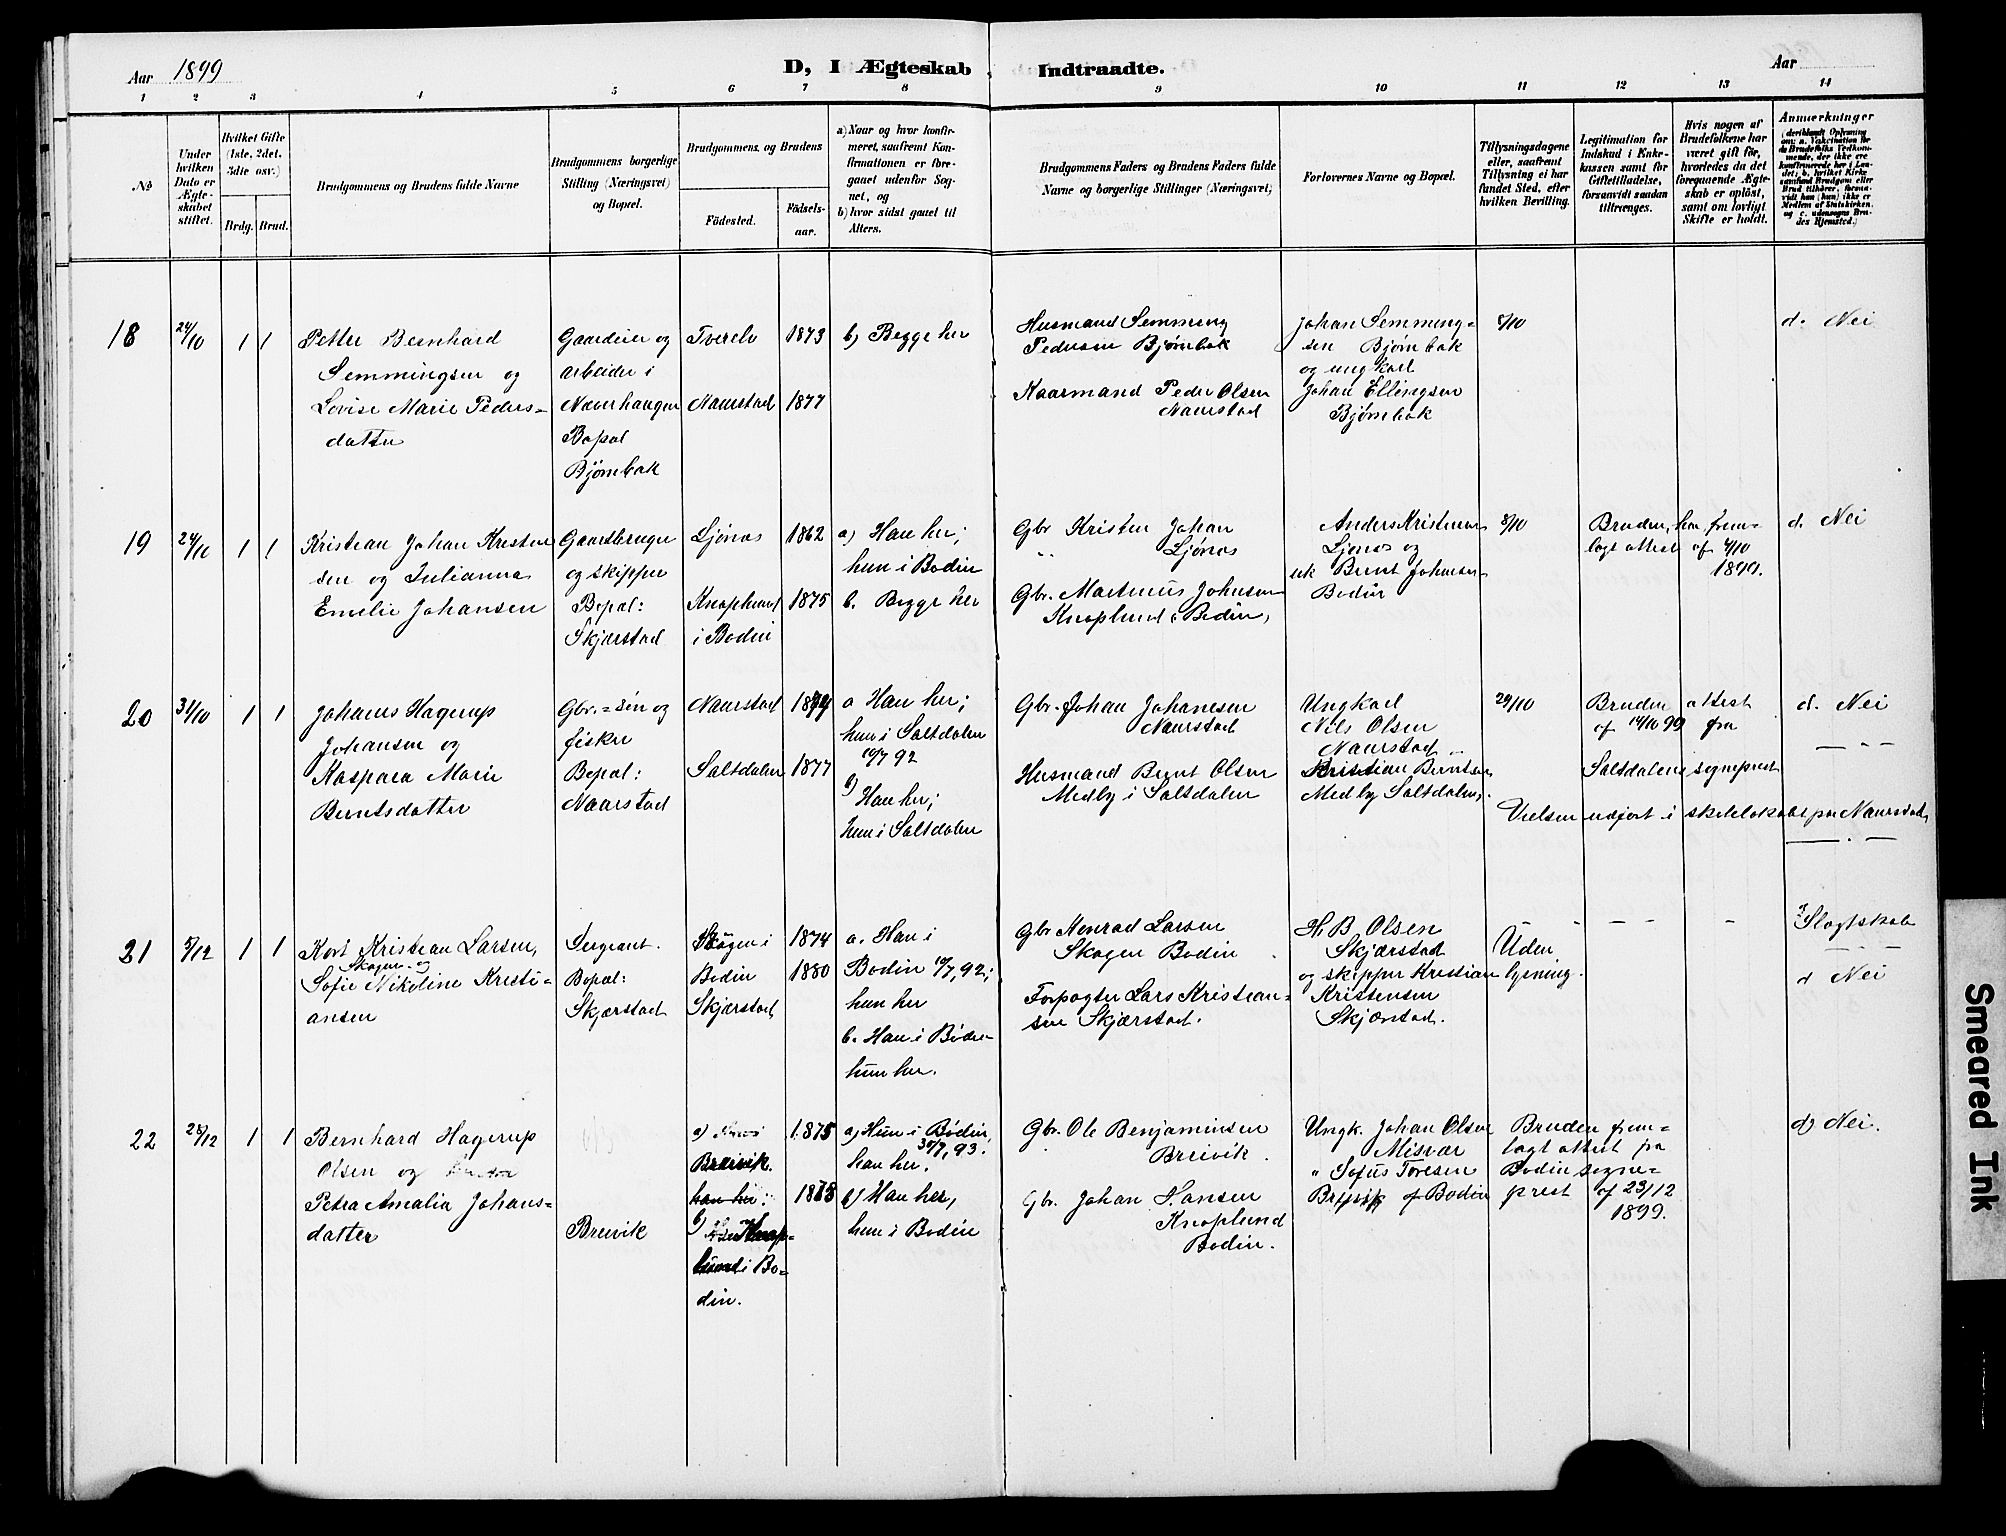 Aar 1899
D, I Ægteskab Indtraadte.
Aar
1 2 3 4 5 6 7 8 9 10 11 12 13 14
No
Under hvilken Dato er Ægteskabet stiftet.
Hvilket Gifte (1ste, 2det, 3die osv.)
Brdg. Brud.
Brudgommens og Brudens fulde Navne
Brudgommens borgerlige Stilling (Næringsvei) og Bopæl.
Brudgommens og Brudens
Födested.
Födselsaar.
a) Naar og hvor konfirmeret, saafremt Konfirmationen er foregaaet udenfor Sognet, og
b) hvor sidst gaaet til Alters.
Brudgommens Faders og Brudens Faders fulde Navne og borgerlige Stillinger (Næringsvei)
Forlovernes Navne og Bopæl.
Tillysningsdagene eller, saafremt Tillysning ei har fundet Sted, efter hvilken Bevilling.
Legitimation for Indskud i Enkekassen samt for Giftetilladelse, forsaavidt saadan tiltrænges.
Hvis nogen af Brudefolkene har været gift för, hvorledes da det foregaaende Ægteskab er oplöst, samt om lovligt Skifte er holdt.
Anmerkninger
18 24/10 1 1
Petter Bernhard
Semmingsen og
Lovise Marie Peders-
datter
Gaardeier og
arbeider i
Næverhaugen
Bopæl
Bjørnbak
Tverelv 1873
Naurstad 1877
b) Begge her
Husmand Semming
Pedersen Bjørnbak
Kaarmand Peder Olsen
Naurstad
Johan Semming-
sen Bjørnbak
og ungkarl
Johan Ellingsen
Bjørnbak
8/10
d. Nei
19 24/10 1 1
Kristian Johan Kristen
sen og Julianna
Emelie Johansen
Gaardbruger
og skipper
Bopæl:
Skjærstad
Ljønes 1862
Knaplund 1875
i Bodin
a) Han her;
hun i Bodin
b. Begge her
Gbr Kristen Johan
Ljønes
Gbr. Martinus Johnsen
Knaplund i Bodin,
Anders Kristensen
Ljønes og
Bernt Johnsen
Bodin
8/10
Bruden har frem-
lagt attest af 4/10
1899.
d. Nei
20 31/10 1 1
Johannes Hagerup
Johansen og
Kaspara Marie
Berntsdatter
Gbr.-søn og
fisker
Bopæl:
Naurstad
Naurstad
Saltdalen 1877
a Han her;
hun i Saltdalen
10/7 92
b) Han her;
hun i Saltdalen
Gbr. Johan Johanesen
Naurstad
Husmand Bernt Olsen
Medby i Saltdalen
Ungkarl
Nils Olsen
Naurstad
Kristian Berntsen
Medby Saltdalen.
29/10
Bruden attest
af 14/10 99 fra
Saltdalens sogneprest
d. Nei
Vielsen udført i skolelokalet paa Naurstad,
21 5/12 1 1
Kort Kristian Larsen,
Skagen og
Sofie Nikoline Kristi-
ansen
Sergeant.
Bopæl:
Skjærstad
Skagen i 1874
Bodin 1880
Skjærstad
a. Han i
Bodin 10/7, 92;
hun her
b. Han i Bodin
hun her.
Gbr Monrad Larsen
Skagen Bodin
Forpagter Lars Kristian-
sen Skjærstad.
H. B. Olsen
Skjærstad
og skipper Kristian
Kristensen
Skjærstad.
Uden
lysning.
Slægtskab
d Nei
22 28/12 1 1
Bernhard Hagerup
Olsen og
Petra Amalia Johans-
datter
Breivik
a)
Breivik. 1875
han her: 1878
b) Knap-
lund i Bo-
din.
a) Hun i Bodin,
30/7, 93.
han her.
b) Han her,
hun i Bodin
Gbr. Ole Benjaminsen
Breivik.
Gbr. Johan Hansen
Knaplund
Bodin.
Ungk. Johan Olsen
Misvær
" Sofus Toresen
Breivik af Bodin
Bruden frem-
lagt attest fra
Bodin sogne-
prest af 23/12
1899.
d) Nei.
Smeared Ink